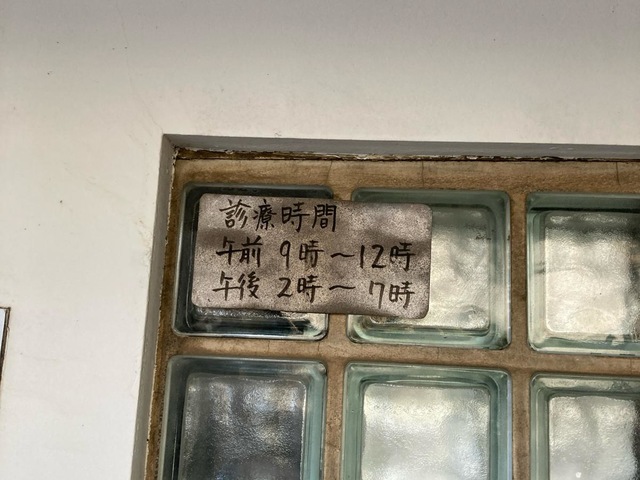 診療時間
午前 9時〜12時
午後 2時〜7時